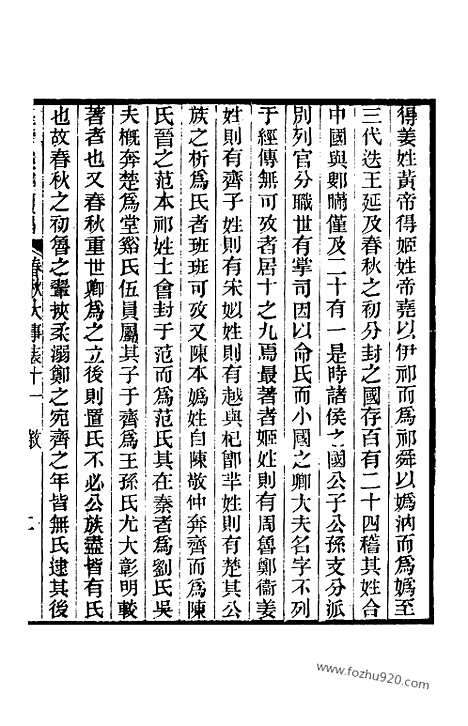 得姜姓黃帝得姬姓帝堯以伊祁而爲祁舜以嬀汭而爲嬀至
三代迭王延及春秋之初分封之國存百有二十四稽其姓合
中國與鄋瞞僅及二十有一是時諸侯之國公子公孫支分派
別列官分職世有掌司因以命氏而小國之卿大夫名字不列
于經傳無可攷者居十之九焉最著者姬姓則有周魯鄭衞姜
姓則有齊子姓則有宋姒姓則有越與杞鄫羋姓則有楚其公
族之析爲氏者班班可攷又陳本嬀姓自陳敬仲奔齊而爲陳
氏晉之范本祁姓士會封于范而爲范氏其在秦者爲劉氏吳
夫槪奔楚爲堂谿氏伍員屬其子于齊爲王孫氏尤大彰明較
著者也又春秋重世卿爲之立後則置氏不必公族盡皆有氏
也故春秋之初魯之翬挾柔溺鄭之宛齊之年皆無氏逮其後
春秋大事表十一 敘 二
www.fozhu920.com